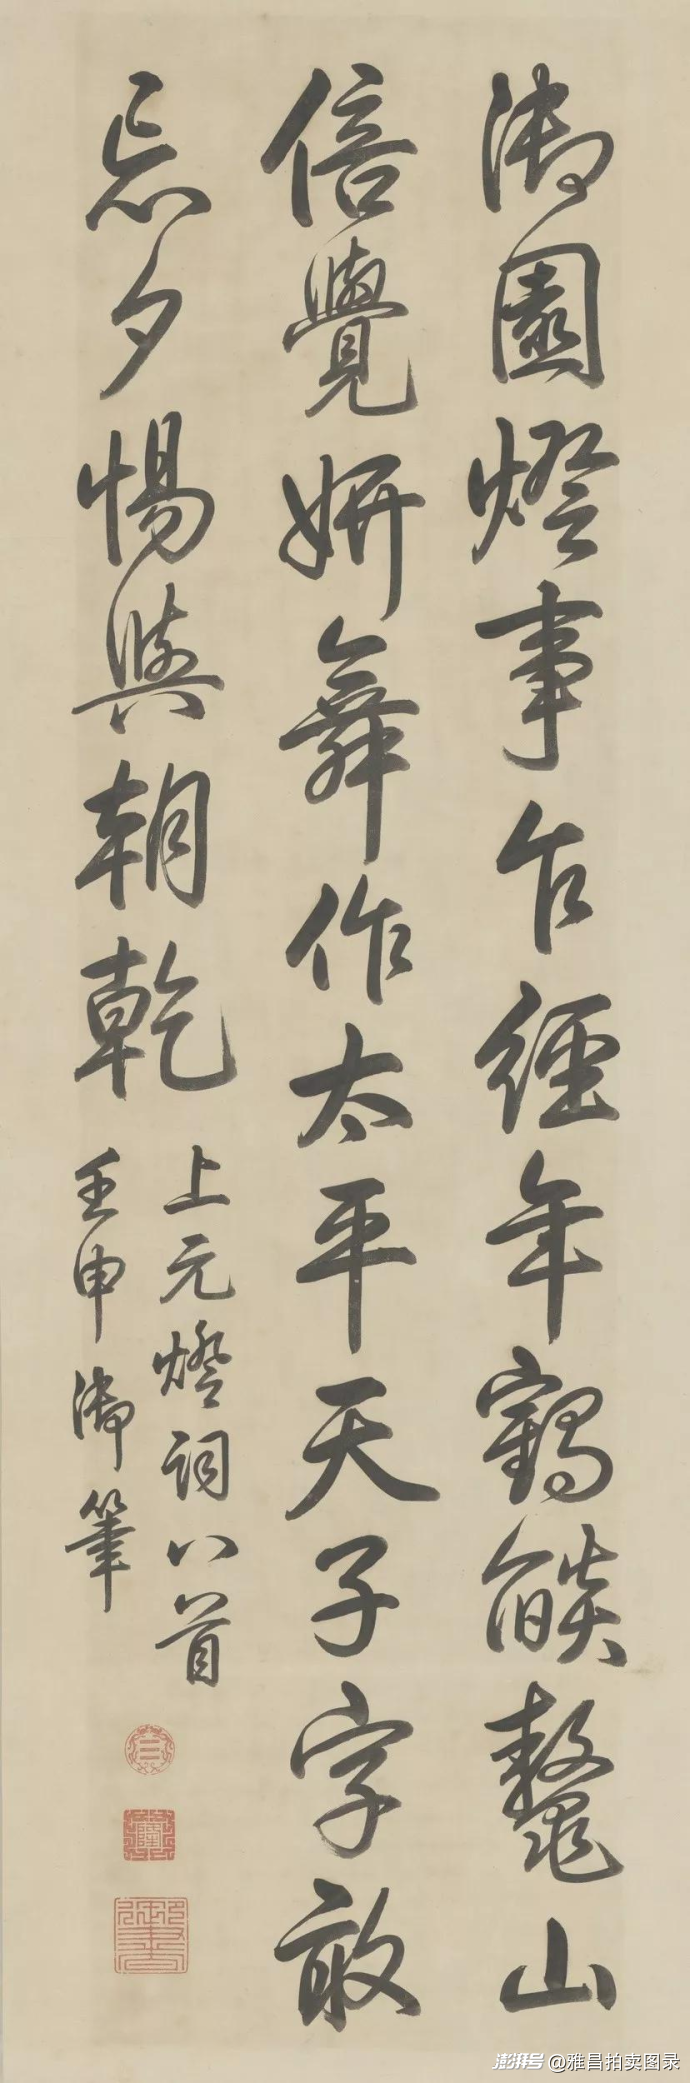 御園燈事乍經年鶴燄鼇山
倍覺妍舞作太平天子字敢
忘夕惕與朝乾
上元燈詞八首
壬申御筆
三
乾隆
御書
澎湃号@雅昌拍卖图录